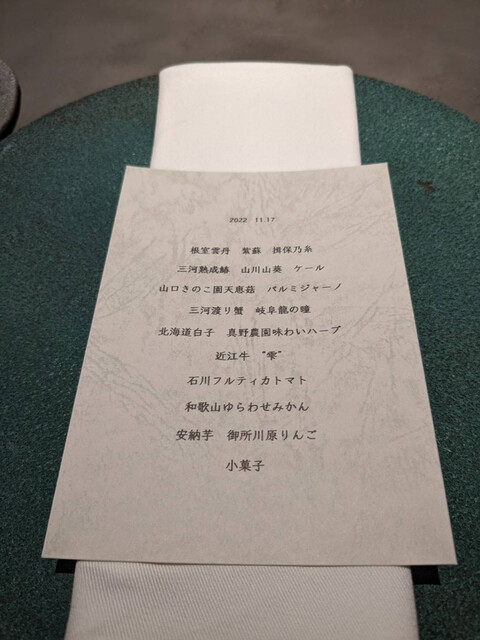 2022 11.17
根室雲丹 紫蘇 揖保乃糸
三河熟成鰆 山川山葵 ケール
山口きのこ園天恵菇 パルミジャーノ
三河渡り蟹 岐阜龍の瞳
北海道白子 真野農園味わいハーブ
近江牛 “雫”
石川フルティカトマト
和歌山ゆらわせみかん
安納芋 御所川原りんご
小菓子